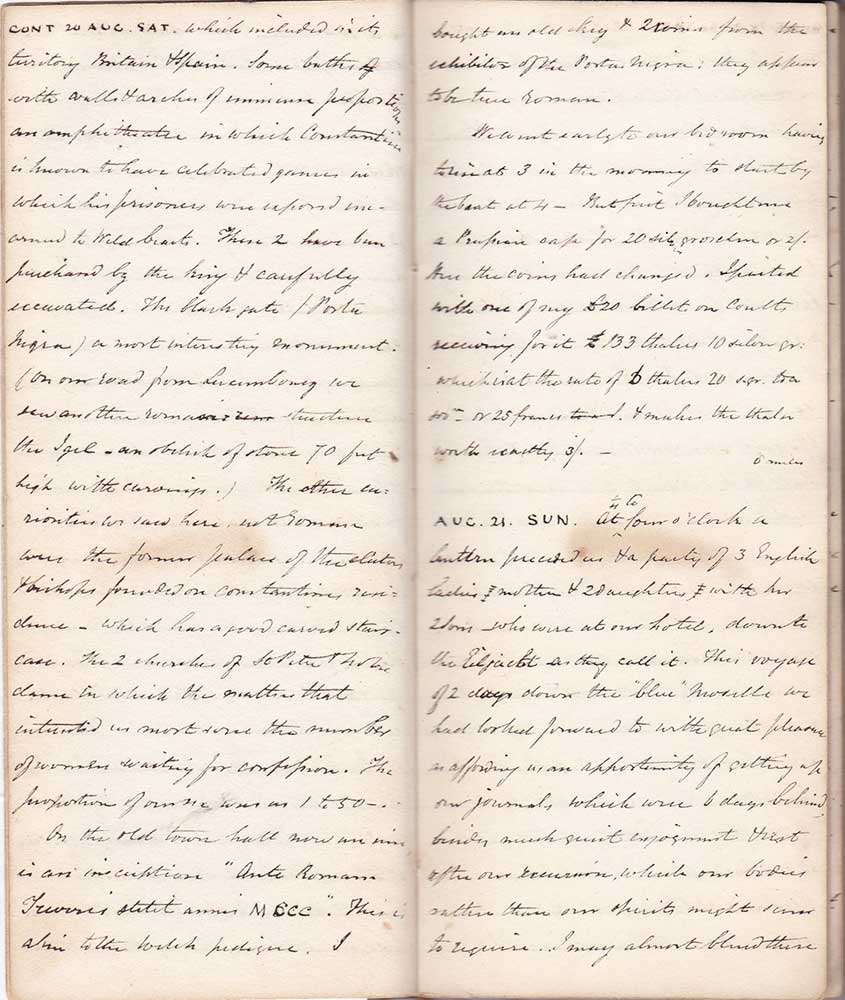 CONT 20 AUG. SAT. which included in its
territory Britain & Spain. Some baths
with walls & arches of immense proportions
an amphitheatre in which Constantine
is known to have celebrated games in
which his prisoners were exposed un-
armed to Wild beasts. These 2 have been
purchased by the king & carefully
excavated. The black gate (Porta
Nigra) a most interesting monument.
(On our road from Luxembourg we
saw another roman structure
the Igel - an obelisk of stone 70 feet
high with carvings.) The other cu-
riosities we saw here, not Roman
were the former palace of the electors
& bishops founded on Constantines resi-
dence - which has a good carved stair-
case. The 2 churches of St Peter & Notre
dame in which the matters that
interested us most were the number
of women waiting for confession. The
proportion of our sex was as 1 to 50 -.
On the old town hall now an inn
is an inscription "Ante Romam
Treveris stetit annis MCCC". This is
akin to the Welch pedigree. I
bought an old key & 2 coins from the
exhibitor of the Porta Nigra: they appear
to be true roman.
We went early to our bedroom having
to rise at 3 in the morning to start by
the boat at 4 - But first I bought me
a Prussian cap for 20 silb. groschen or 2/.
Here the coins had changed. I parted
with one of my £20 billet on Coutts
receiving for it 133 thalers 10 silver gr:
which is at the rate of 6 thalers 20 s.gr. to a
sovn or 25 francs & makes the thaler
worth exactly 3/. -
6 miles
AUG. 21. SUN. At four o'clock a
lantern preceded us & a party of 3 English
ladies mother & 2 daughters with her
2 sons - who were at our hotel, down to
the Eiljacht as they call it. This voyage
of 2 days down the "blue" Moselle we
had looked forward to with great pleasure
as affording us an opportunity of getting up
our journals which were 6 days behind,
besides much quiet enjoyment & rest
after our excursion, which our bodies
rather than our spirits might seem
to require. I may almost blend these